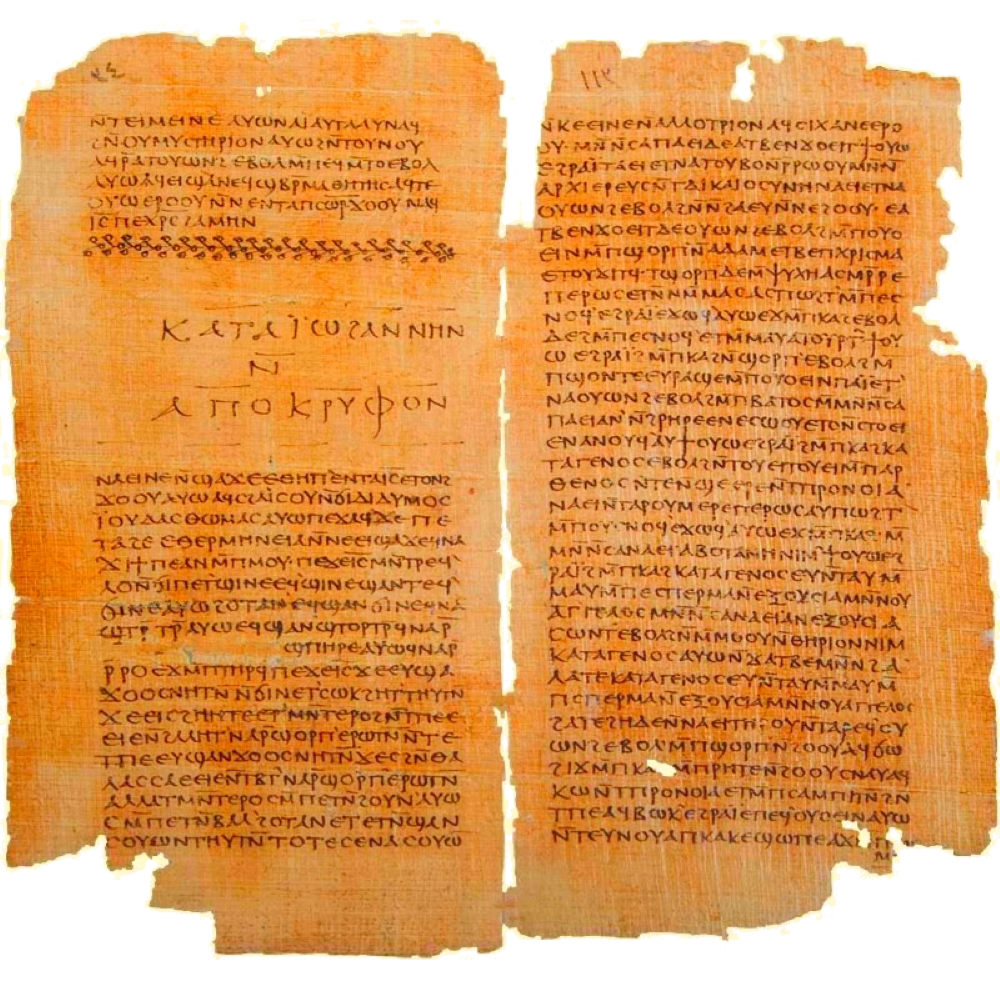 ⲛ̄ⲧⲉⲓⲙⲉⲓⲛⲉ ⲁⲩⲱ ⲛⲁⲓ̈ ⲁⲩⲧⲁⲁⲩ ⲛⲁϥ
ϩⲛ̄ⲟⲩⲙⲩⲥⲧⲏⲣⲓⲟⲛ ⲁⲩⲱ ϩⲛⲧⲟⲩⲛⲟⲩ
ⲁϥⲣ̄ⲁⲧⲟⲩⲱⲛϩ ⲉⲃⲟⲗ ⲙ̄ⲡⲉϥⲙ̄ⲧⲟ ⲉⲃⲟⲗ
ⲁⲩⲱ ⲁϥⲉⲓ ϣⲁⲛⲉϥϣⲃⲣ̄ⲙⲁⲑⲏⲧⲏⲥ ⲁϥⲧⲉ
ⲟⲩⲱ ⲉⲣⲟⲟⲩ ⲛ̄ⲛⲉⲛⲧⲁⲡⲥⲱ̄ⲣ ϫⲟⲟⲩ ⲛⲁϥ
ⲓ̄ⲥ̄ ⲡⲉⲭⲣ̄ⲥ̄ ϩⲁⲙⲏⲛ
ⲕⲁⲧⲁ ⲓ̈ⲱϩⲁⲛⲛⲏⲛ
ⲛ̄
ⲁⲡⲟⲕⲣⲩⲫⲟⲛ
ⲛⲁⲉⲓ ⲛⲉ ⲛ̄ϣⲁϫⲉ ⲉⲑⲏⲡ ⲉⲛⲧⲁⲓ̄ⲥ̄ ⲉⲧⲟⲛϩ
ϫⲟⲟⲩ ⲁⲩⲱ ⲁϥⲥϩⲁⲓ̈ⲥⲟⲩ ⲛ̄ϭⲓ ⲇⲓⲇⲩⲙⲟⲥ
ⲓ̈ⲟⲩⲇⲁⲥ ⲑⲱⲙⲁⲥ ⲁⲩⲱ ⲡⲉϫⲁϥ ϫⲉ ⲡⲉ
ⲧⲁϩⲉ ⲉⲑⲉⲣⲙⲏⲛⲉⲓⲁ ⲛ̄ⲛⲉⲉⲓϣⲁϫⲉ ϥⲛⲁ
ϫⲓϯⲡⲉ ⲁⲛ ⲙ̄ⲡⲙⲟⲩ ⲡⲉϫⲉⲓ̄ⲥ̄ ⲙⲛ̄ⲧⲣⲉϥ
ⲗⲟ ⲛ̄ϭⲓ ⲡⲉⲧϣⲓⲛⲉ ⲉϥϣⲓⲛⲉ ϣⲁⲛⲧⲉϥ
ϭⲓⲛⲉ ⲁⲩⲱ ϩⲟⲧⲁⲛ ⲉϥϣⲁⲛϭⲓⲛⲉ ϥⲛⲁ
ϣⲧⲣ̄ⲧⲣ̄ ⲁⲩⲱ ⲉϥϣⲁⲛϣⲧⲟⲣⲧⲣ̄ ϥⲛⲁⲣ̄
ϣⲡⲏⲣⲉ ⲁⲩⲱ ϥⲛⲁⲣ̄
ⲣ̄ⲣⲟ ⲉϫⲙ̄ⲡⲧⲏⲣϥ ⲡⲉϫⲉⲓ̄ⲥ̄ ϫⲉ ⲉⲩϣⲁ
ϫⲟⲟⲥ ⲛⲏⲧⲛ̄ ⲛ̄ϭⲓ ⲛⲉⲧⲥⲱⲕ ϩⲏⲧ ⲧⲏⲩⲧⲛ̄
ϫⲉ ⲉⲓⲥϩⲏⲏⲧⲉ ⲉⲧⲙⲛ̄ⲧⲉⲣⲟ ϩⲛ̄ⲧⲡⲉ ⲉ
ⲉⲓⲉ ⲛ̄ϩⲁⲗⲏⲧ ⲛⲁⲣ̄ϣⲟⲣⲡ ⲉⲣⲱⲧⲛ̄ ⲛ̄ⲧⲉ
ⲧⲡⲉ ⲉⲩϣⲁⲛϫⲟⲟⲥ ⲛⲏⲧⲛ̄ ϫⲉ ⲥϩⲛ̄ⲑⲁ
ⲗⲁⲥⲥⲁ ⲉⲉⲓⲉ ⲛ̄ⲧⲃⲧ ⲛⲁⲣ̄ϣⲟⲣⲡ ⲉⲣⲱⲧⲛ̄
ⲁⲗⲗⲁ ⲧⲙⲛ̄ⲧⲉⲣⲟ ⲥⲙ̄ⲡⲉⲧⲛ̄ϩⲟⲩⲛ ⲁⲩⲱ
ⲥⲙ̄ⲡⲉⲧⲛ̄ⲃⲁⲗ ϩⲟⲧⲁⲛ ⲉⲧⲉⲧⲛ̄ϣⲁⲛ
ⲥⲟⲩⲱⲛ ⲧⲏⲩⲧⲛ̄ ⲧⲟⲧⲉ ⲥⲉⲛⲁⲥⲟⲩⲱ
ⲛ̄ⲕⲉⲉⲓⲛⲉ ⲛ̄ⲁⲗⲗⲟⲧⲣⲓⲟⲛ ⲁϥⲥⲓⲭⲁⲛⲉ ⲉⲣⲟ
ⲟⲩ ⲙⲛ̄ⲛ̄ⲥⲁⲡⲁⲉⲓ ⲇⲉ ⲁⲧⲃⲉⲛϫⲟⲉⲓⲥ ϯⲟⲩⲱ
ⲉϩⲣⲁⲓ̈
ⲁⲣⲭⲓⲉⲣⲉⲩⲥ ⲛ̄ⲧⲇⲓⲕⲁⲓⲟⲥⲩⲛⲏ ⲛⲁⲉⲓ ⲉⲧⲛⲁ
ⲟⲩⲱⲛϩ ⲉⲃⲟⲗ ϩⲛ̄ⲛ̄ϩⲁⲉⲩ ⲛ̄ⲛⲉϩⲟⲟⲩ
ⲉⲓⲛ ⲙ̄ⲡϣⲟⲣⲡ ⲛ̄ⲁⲇⲁⲙ ⲉⲧⲃⲉⲡⲭⲣⲓⲥⲙⲁ
ⲉⲧⲟⲩϫⲓⲧϥ ⲧϣⲟⲣⲡ ⲇⲉ ⲙ̄ⲯⲩⲭⲏ ⲁⲥⲙⲣ̄ⲣⲉ
ⲡⲉⲣⲱⲥ ⲉⲧⲛ̄ⲙⲙⲁⲥ ⲁⲥⲡⲱϩⲧ ⲙ̄ⲡⲉⲥ
ⲥⲛⲟϥ ⲉϩⲣⲁⲓ̈ ⲉϫⲱϥ ⲁⲩⲱ ⲉϫⲙ̄ⲡⲕⲁϩ ⲉⲃⲟⲗ
ⲇⲉ ϩⲙ̄ⲡⲉⲥⲛⲟϥ ⲉⲧⲙ̄ⲙⲁⲩ ⲁⲟⲩⲣⲧ ϯⲟⲩ
ⲱ ⲉϩⲣⲁⲓ̈ ϩⲙ̄ⲡⲕⲁϩ ⲛ̄ϣⲟⲣⲡ ⲉⲃⲟⲗ ϩⲙ̄
ⲡϣⲟⲛⲧⲉ ⲉⲩⲣⲁϣⲉ ⲙ̄ⲡⲟⲩⲟⲉⲓⲛ ⲡⲁⲓ̈ ⲉⲧ
ⲛⲁⲟⲩⲱⲛϩ ⲉⲃⲟⲗ ϩⲙ̄ⲡⲃⲁⲧⲟⲥ ⲙⲙⲛ̄ⲛ̄ⲥⲁ
ⲡⲁⲉⲓ ⲁⲛ̄ϩⲣⲏⲣⲉ ⲉⲛⲉⲥⲱⲟⲩ ⲉⲧⲟⲛⲥⲧⲟⲉⲓ
ⲉⲛⲁⲛⲟⲩϥ ⲁⲩϯⲟⲩⲱ ⲉϩⲣⲁⲓ̈ ϩⲙ̄ⲡⲕⲁϩ ⲕⲁ
ⲧⲁⲅⲉⲛⲟⲥ ⲉⲃⲟⲗ ϩⲛ̄ⲧⲟⲩⲉ ⲡⲟⲩⲉⲓ ⲙ̄ⲡⲁⲣ
ⲑⲉⲛⲟⲥ ⲛ̄ⲧⲉⲛϣⲉⲉⲣⲉ ⲛ̄ⲧⲡⲣⲟⲛⲟⲓⲁ
ⲛⲁⲉⲓ ⲛ̄ⲧⲁⲣⲟⲩⲙⲉⲣⲉⲡⲉⲣⲱⲥ ⲁⲩⲡⲱϩⲧ
ⲙ̄ⲡⲟⲩⲥⲛⲟϥ ⲉϫⲱϥ ⲁⲩⲱ ⲉϫⲙ̄ⲡⲕⲁϩ
ⲙⲛ̄ⲛ̄ⲥⲁⲛⲁⲉⲓ ⲁⲃⲟⲧⲁⲛⲏ ⲛⲓⲙ ϯⲟⲩⲱ ⲉϩ
ⲣⲁⲓ̈ ϩⲙ̄ⲡⲕⲁϩ ⲕⲁⲧⲁⲅⲉⲛⲟⲥ ⲉⲩⲛ̄ⲧⲁⲩ ⲙ
ⲙⲁⲩ ⲙ̄ⲡⲉⲥⲡⲉⲣⲙⲁ ⲛ̄ⲉⲝⲟⲩⲥⲓⲁ ⲙⲛ̄ⲛⲟⲩ
ⲁⲅⲅⲉⲗⲟⲥ ⲙⲛ̄ⲛ̄ⲥⲁⲛⲁⲉⲓ ⲁⲛⲉⲝⲟⲩⲥⲓⲁ
ⲥⲱⲛⲧ ⲉⲃⲟⲗ ϩⲛ̄ⲙ̄ⲙⲟⲟⲩ ⲛ̄ⲑⲏⲣⲓⲟⲛ ⲛⲓⲙ
ⲕⲁⲧⲁⲅⲉⲛⲟⲥ ⲁⲩⲱ ⲛ̄ϫⲁⲧⲃⲉ ⲙⲛ̄ⲛ̄ϩⲁ
ⲗⲁⲧⲉ ⲕⲁⲧⲁⲅⲉⲛⲟⲥ ⲉⲩⲛ̄ⲧⲁⲩ ⲙⲙⲁⲩ ⲙ
ⲡⲥⲡⲉⲣⲙⲁ ⲛ̄ⲉⲝⲟⲩⲥⲓⲁ ⲙⲛ̄ⲛⲟⲩⲁⲅⲅⲉⲗⲟⲥ
ϩⲁⲧⲉϩⲏ ⲇⲉ ⲛ̄ⲛⲁⲉⲓ ⲧⲏⲣⲟⲩ ⲛ̄ⲧⲁⲣⲉϥⲟⲩ
ⲱⲛϩ ⲉⲃⲟⲗ ⲙ̄ⲡϣⲟⲣⲡ ⲛ̄ϩⲟⲟⲩ ⲁϥϭⲱ
ϩⲓϫⲙ̄ⲡⲕⲁϩ ⲙ̄ⲡⲣⲏⲧⲉ ⲛ̄ϩⲟⲟⲩ ⲥⲛⲁⲩ ⲁϥ
ⲕⲱ ⲛ̄ⲧⲡⲣⲟⲛⲟⲓⲁ ⲉⲧⲙ̄ⲡⲥⲁ ⲙⲡⲓⲧⲛ̄ ϩⲛ̄
ⲧⲡⲉ ⲁϥⲃⲱⲕ ⲉϩⲣⲁⲓ̈ ⲉⲡⲉϥⲟⲩⲟⲉⲓⲛ ⲁⲩⲱ
ⲛ̄ⲧⲉⲩⲛⲟⲩ ⲁⲡⲕⲁⲕⲉ ϣⲱⲡⲉ